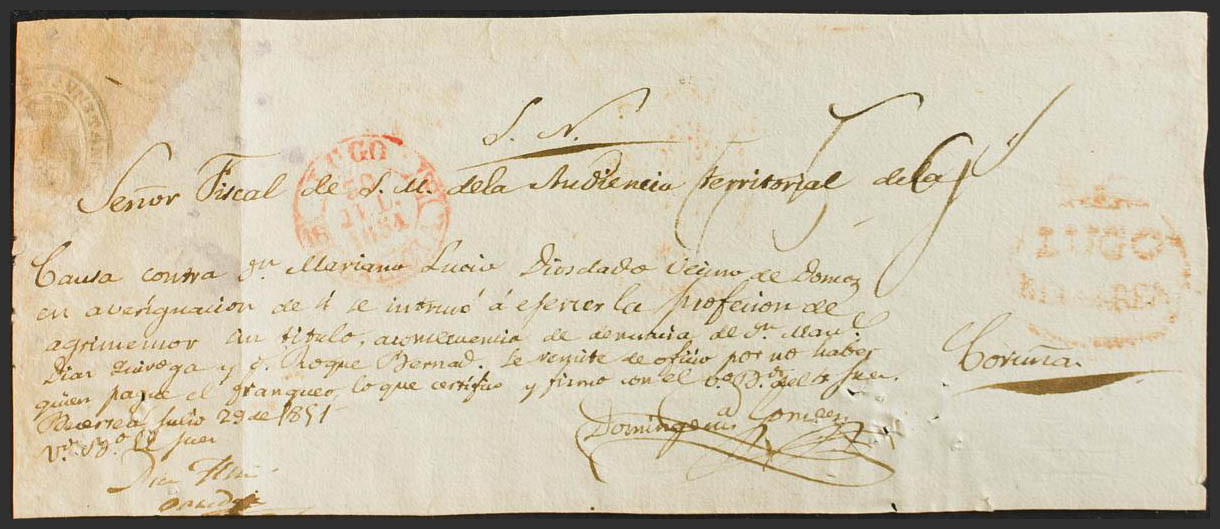 S. N.
Señor Fiscal de S. M. de la Audiencia territorial de la
LUGO
30
JUL.
1851
Causa contra Dn. Mariano Lucio Diosdado Vecino de
en averiguacion de q. se intrusó á ejercer la profesion de
agrimensor sin titulo, a consecuencia de denuncia de Dn. Manl.
Dias Quiroga y D. Roque Bernad. Se remite de oficio por no haber
quien pague el franqueo, lo que certifico y firmo con el Vo. Bo. del Sr. Juez.
Becerrea Julio 29 de 1851
Vo. Bo. El Juez
Coruña.